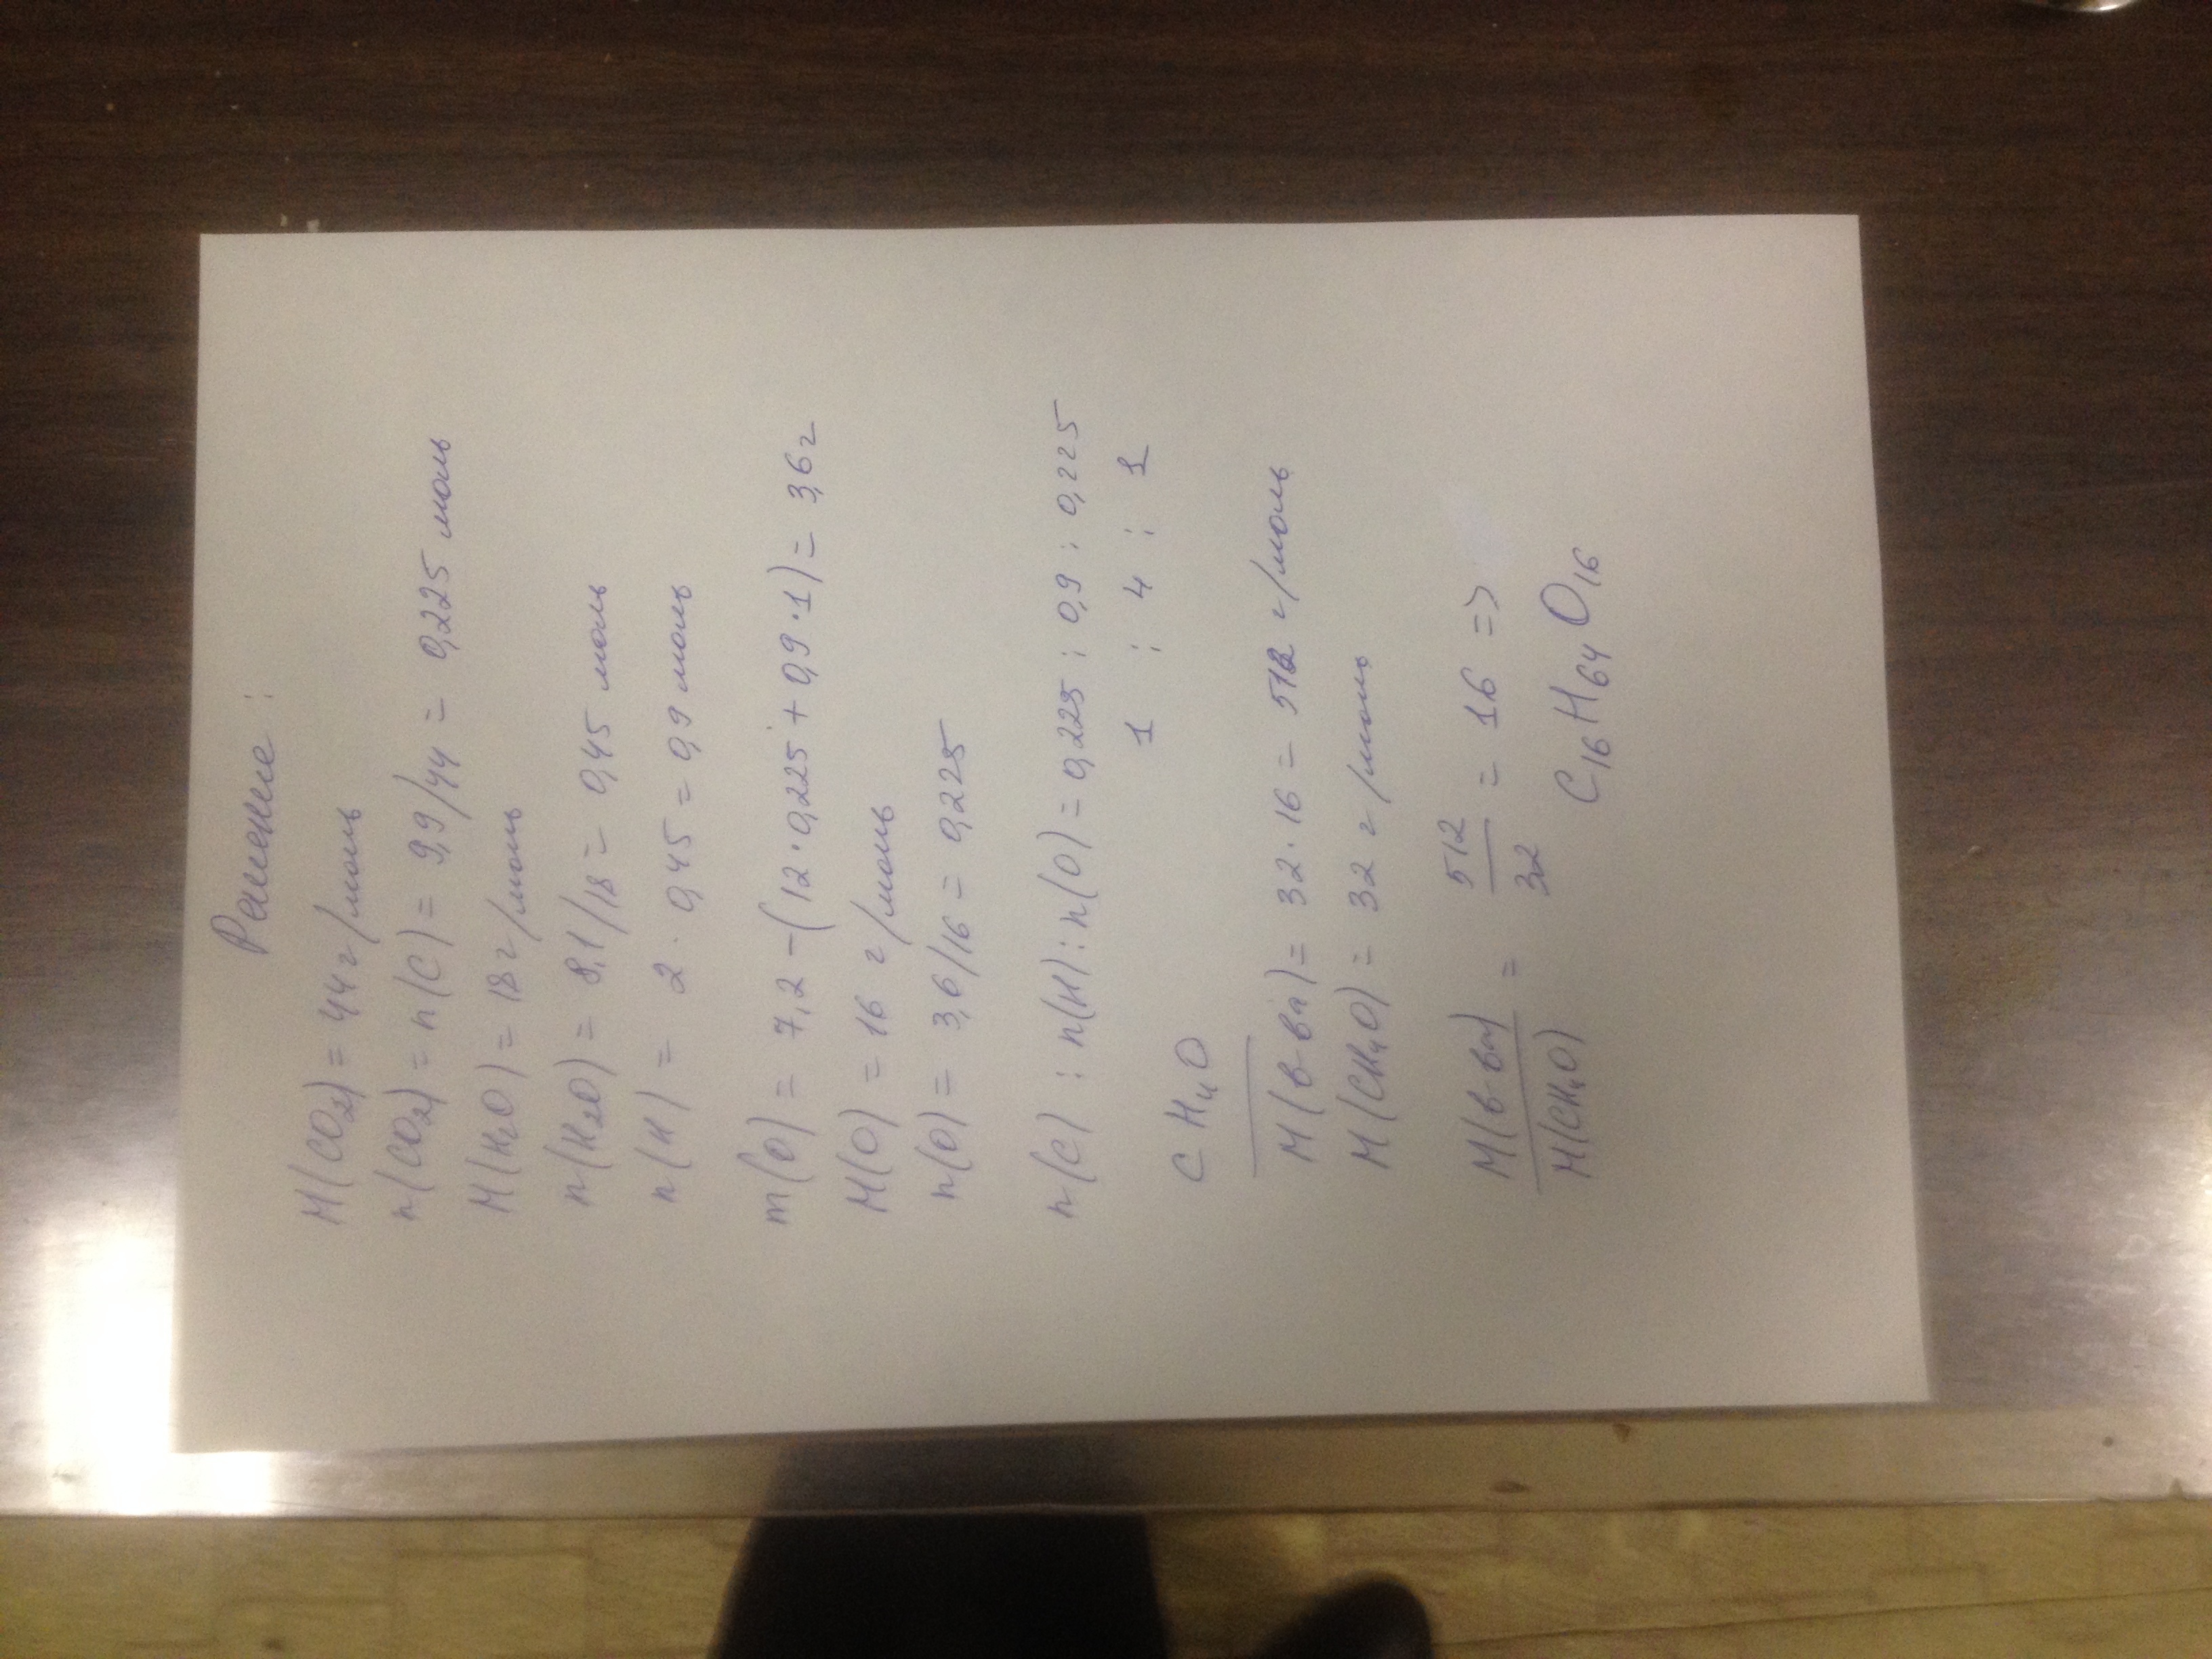 Решение:
M(CO2) = 44 г/моль
n(CO2) = n(C) = 9,9/44 = 0,225 моль
M(H2O) = 18 г/моль
n(H2O) = 8,1/18 = 0,45 моль
n(H) = 2 · 0,45 = 0,9 моль
m(O) = 7,2 - (12 · 0,225 + 0,9 · 1) = 3,6 г
M(O) = 16 г/моль
n(O) = 3,6/16 = 0,225
n(C) : n(H) : n(O) = 0,225 : 0,9 : 0,225
1 : 4 : 1
CH4O
M(в-ва) = 32 · 16 = 512 г/моль
M(CH4O) = 32 г/моль
M(в-ва)/M(CH4O) = 512/32 = 16 =>
C16H64O16